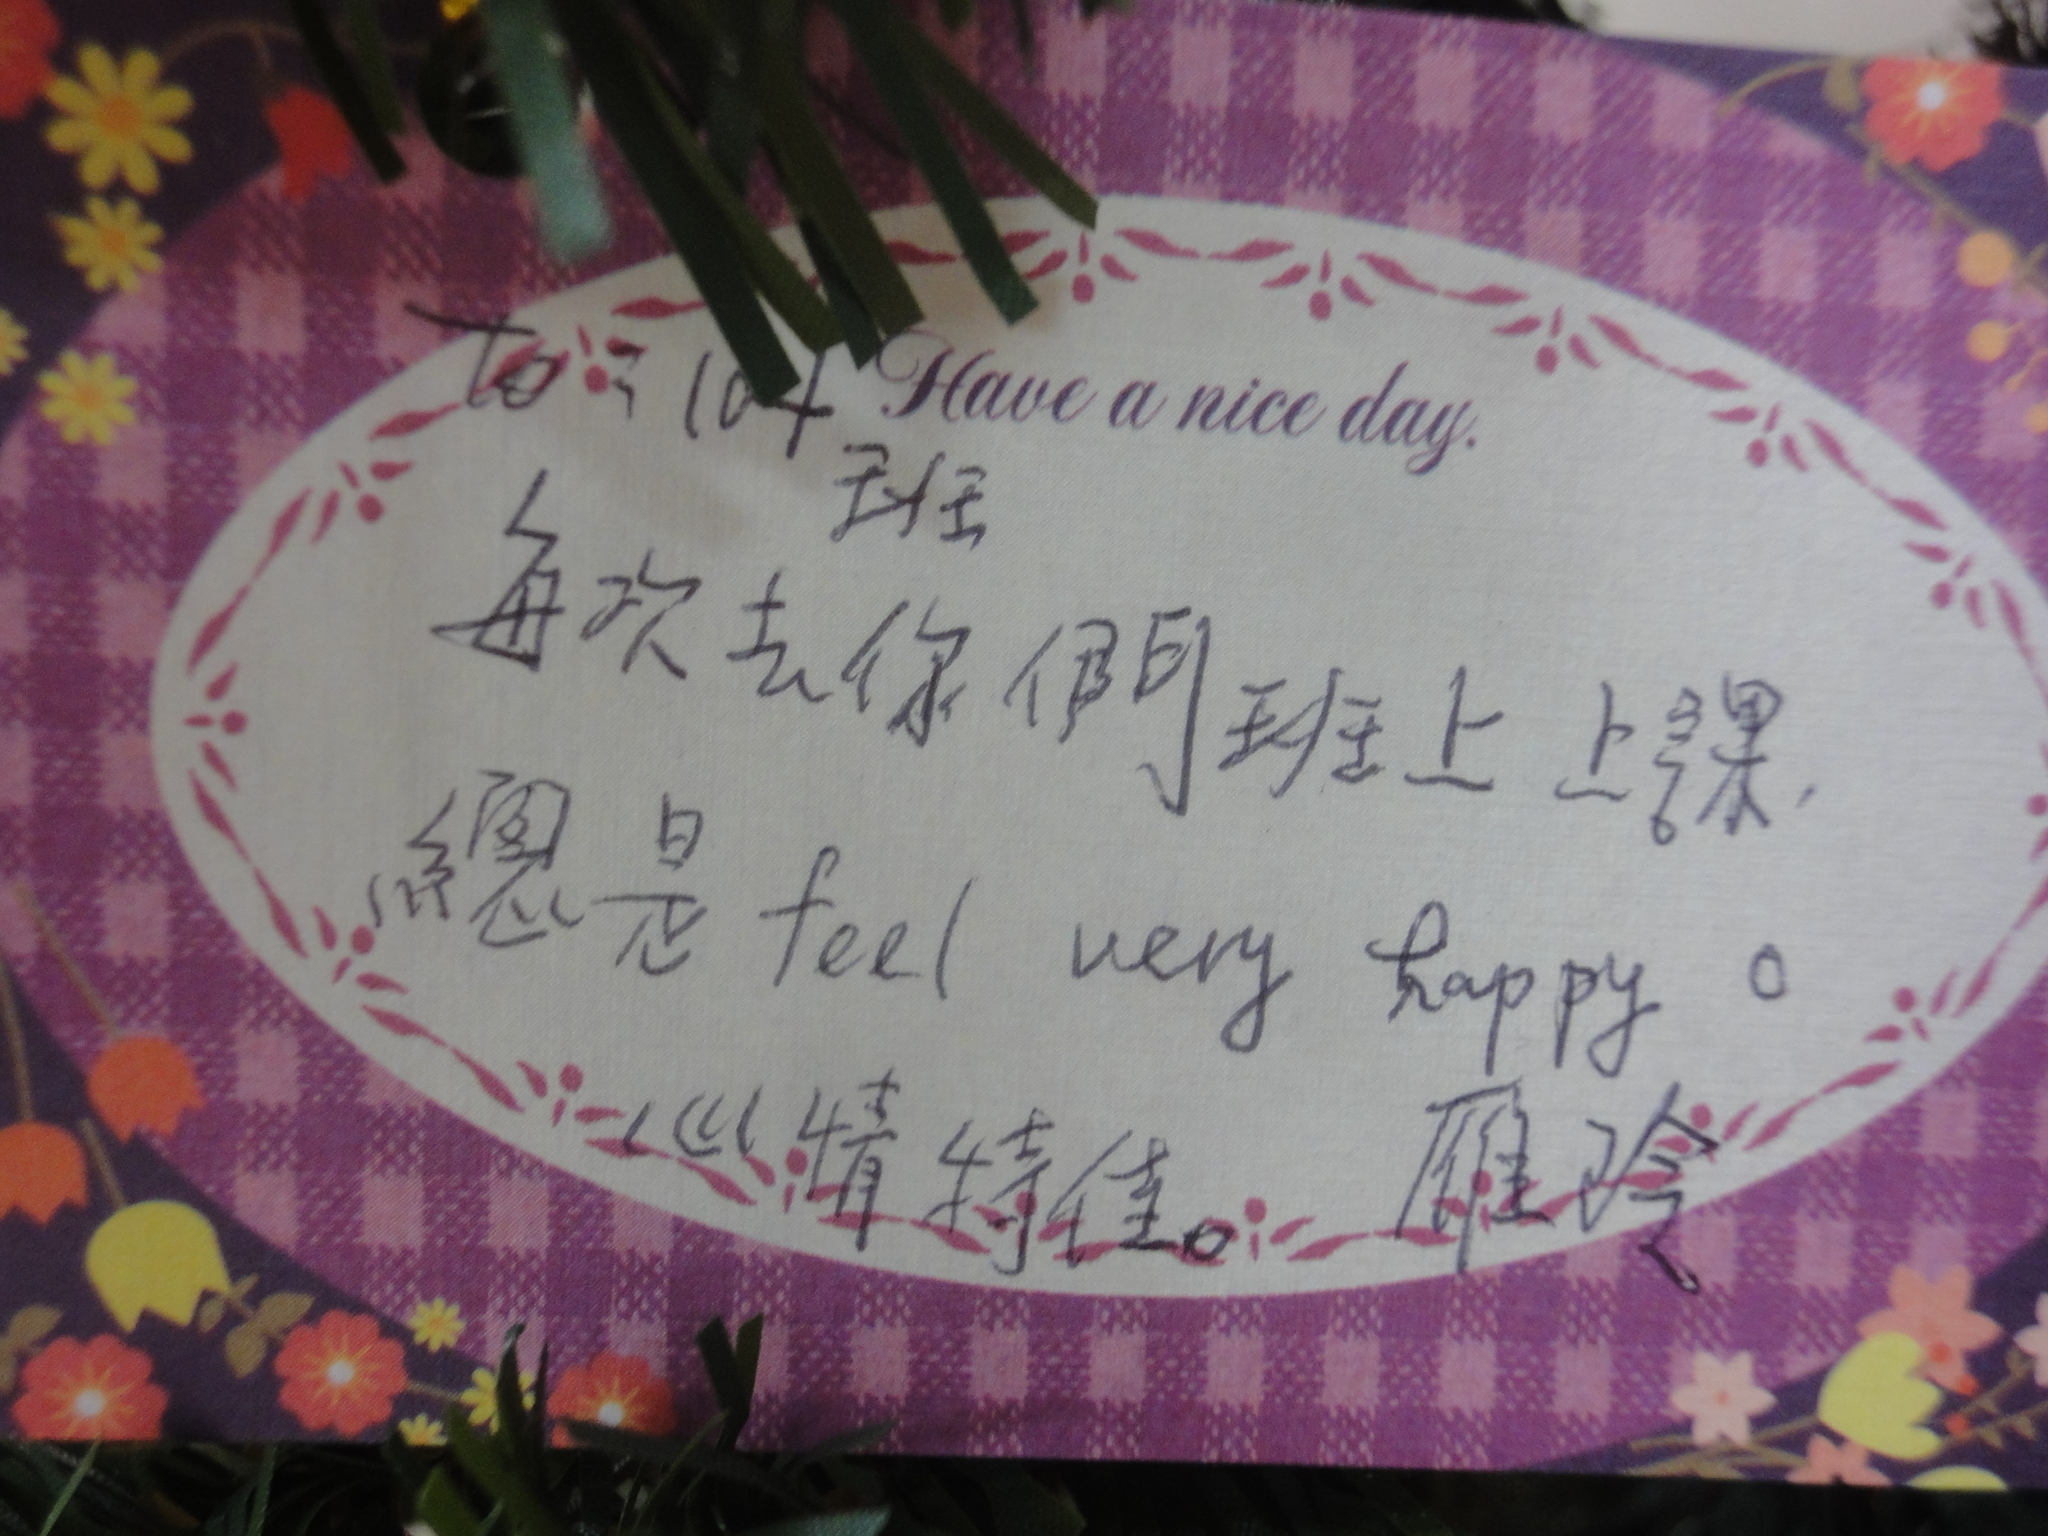 To: 104 Have a nice day.
班
每次去你們班上上課,
總是 feel very happy。
心情特佳。 雁玲